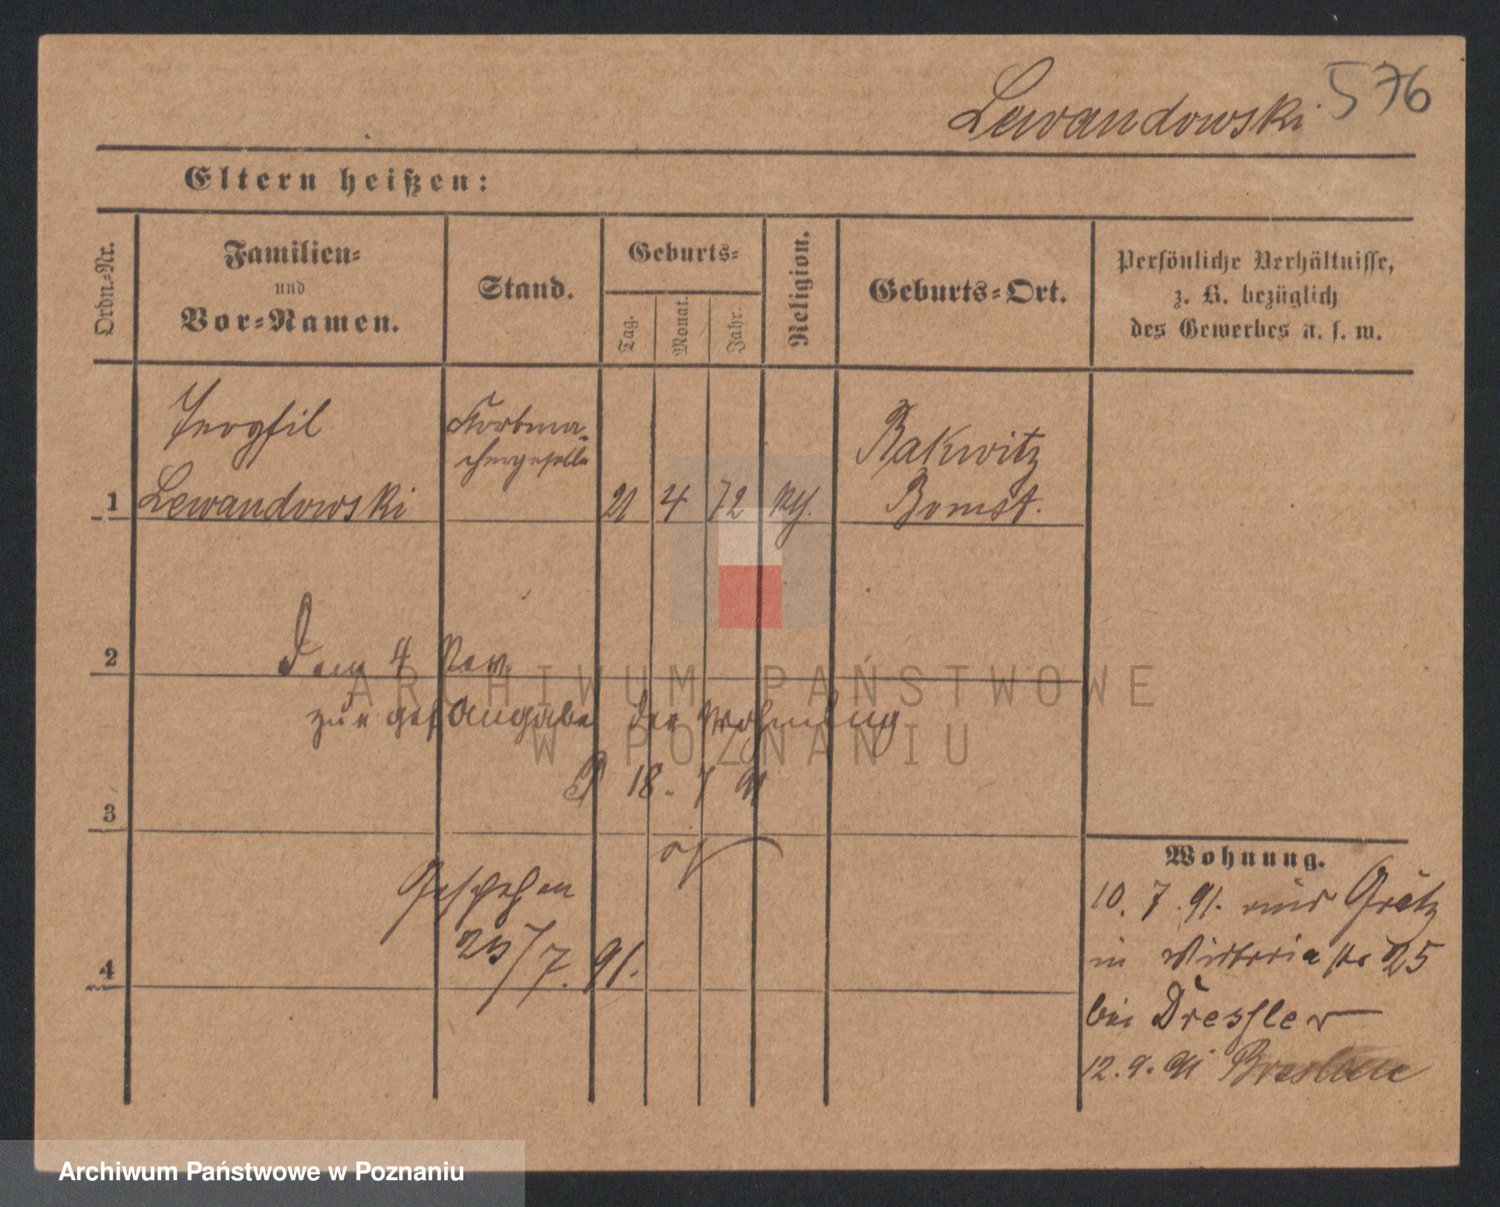 Lewandowski 576
Eltern heißen:
Ordn.-Nr.
Familien-
und
Vor-Namen.
Stand.
Geburts-
Tag.
Monat.
Jahr.
Religion.
Geburts-Ort.
Persönliche Verhältnisse,
z. B. bezüglich
des Gewerbes u. s. w.
Korbma-
chergeselle
1 Lewandowski 21 4 72 Rakwitz
Bomst.
2 Dem 4 Rev.
zur gef Angabe der Wohnung
P 18. 7 91
3
Geschehen
25/7. 91.
4
Wohnung.
10. 7. 91. Grätz
in Victoria str 25
bei Dressler
12. 9. 91 Breslau
ARCHIWUM PAŃSTWOWE
W POZNANIU
Archiwum Państwowe w Poznaniu